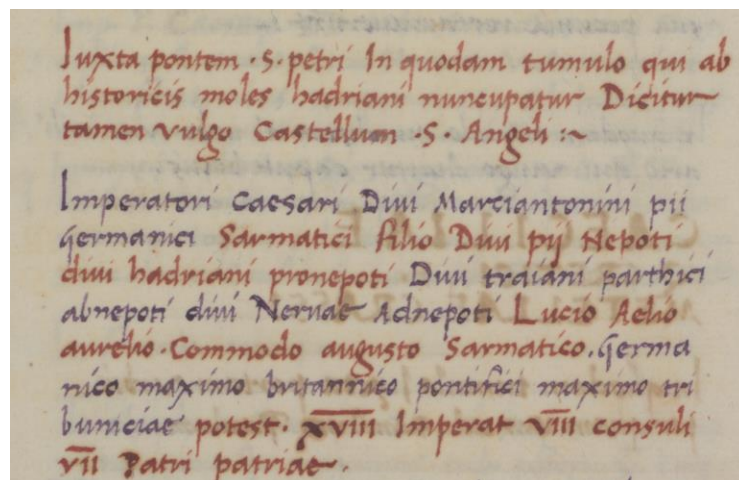 Iuxta pontem · S · petri In quodam tumulo qui ab
historicis moles hadriani nuncupatur Dicitur
tamen vulgo Castellum · S · Angeli :~
Imperatori Caesari Divi Marciantonini pii
germanici Sarmatici filio Divi pij Nepoti
divi hadriani pronepoti Divi traiani parthici
abnepoti divi Nervae Adnepoti Lucio Aelio
aurelio · Commodo augusto Sarmatico · germa
nico maximo britannico pontifici maximo tri
buniciae potest · XVIII Imperat VIII consuli
VII Patri patriae ·